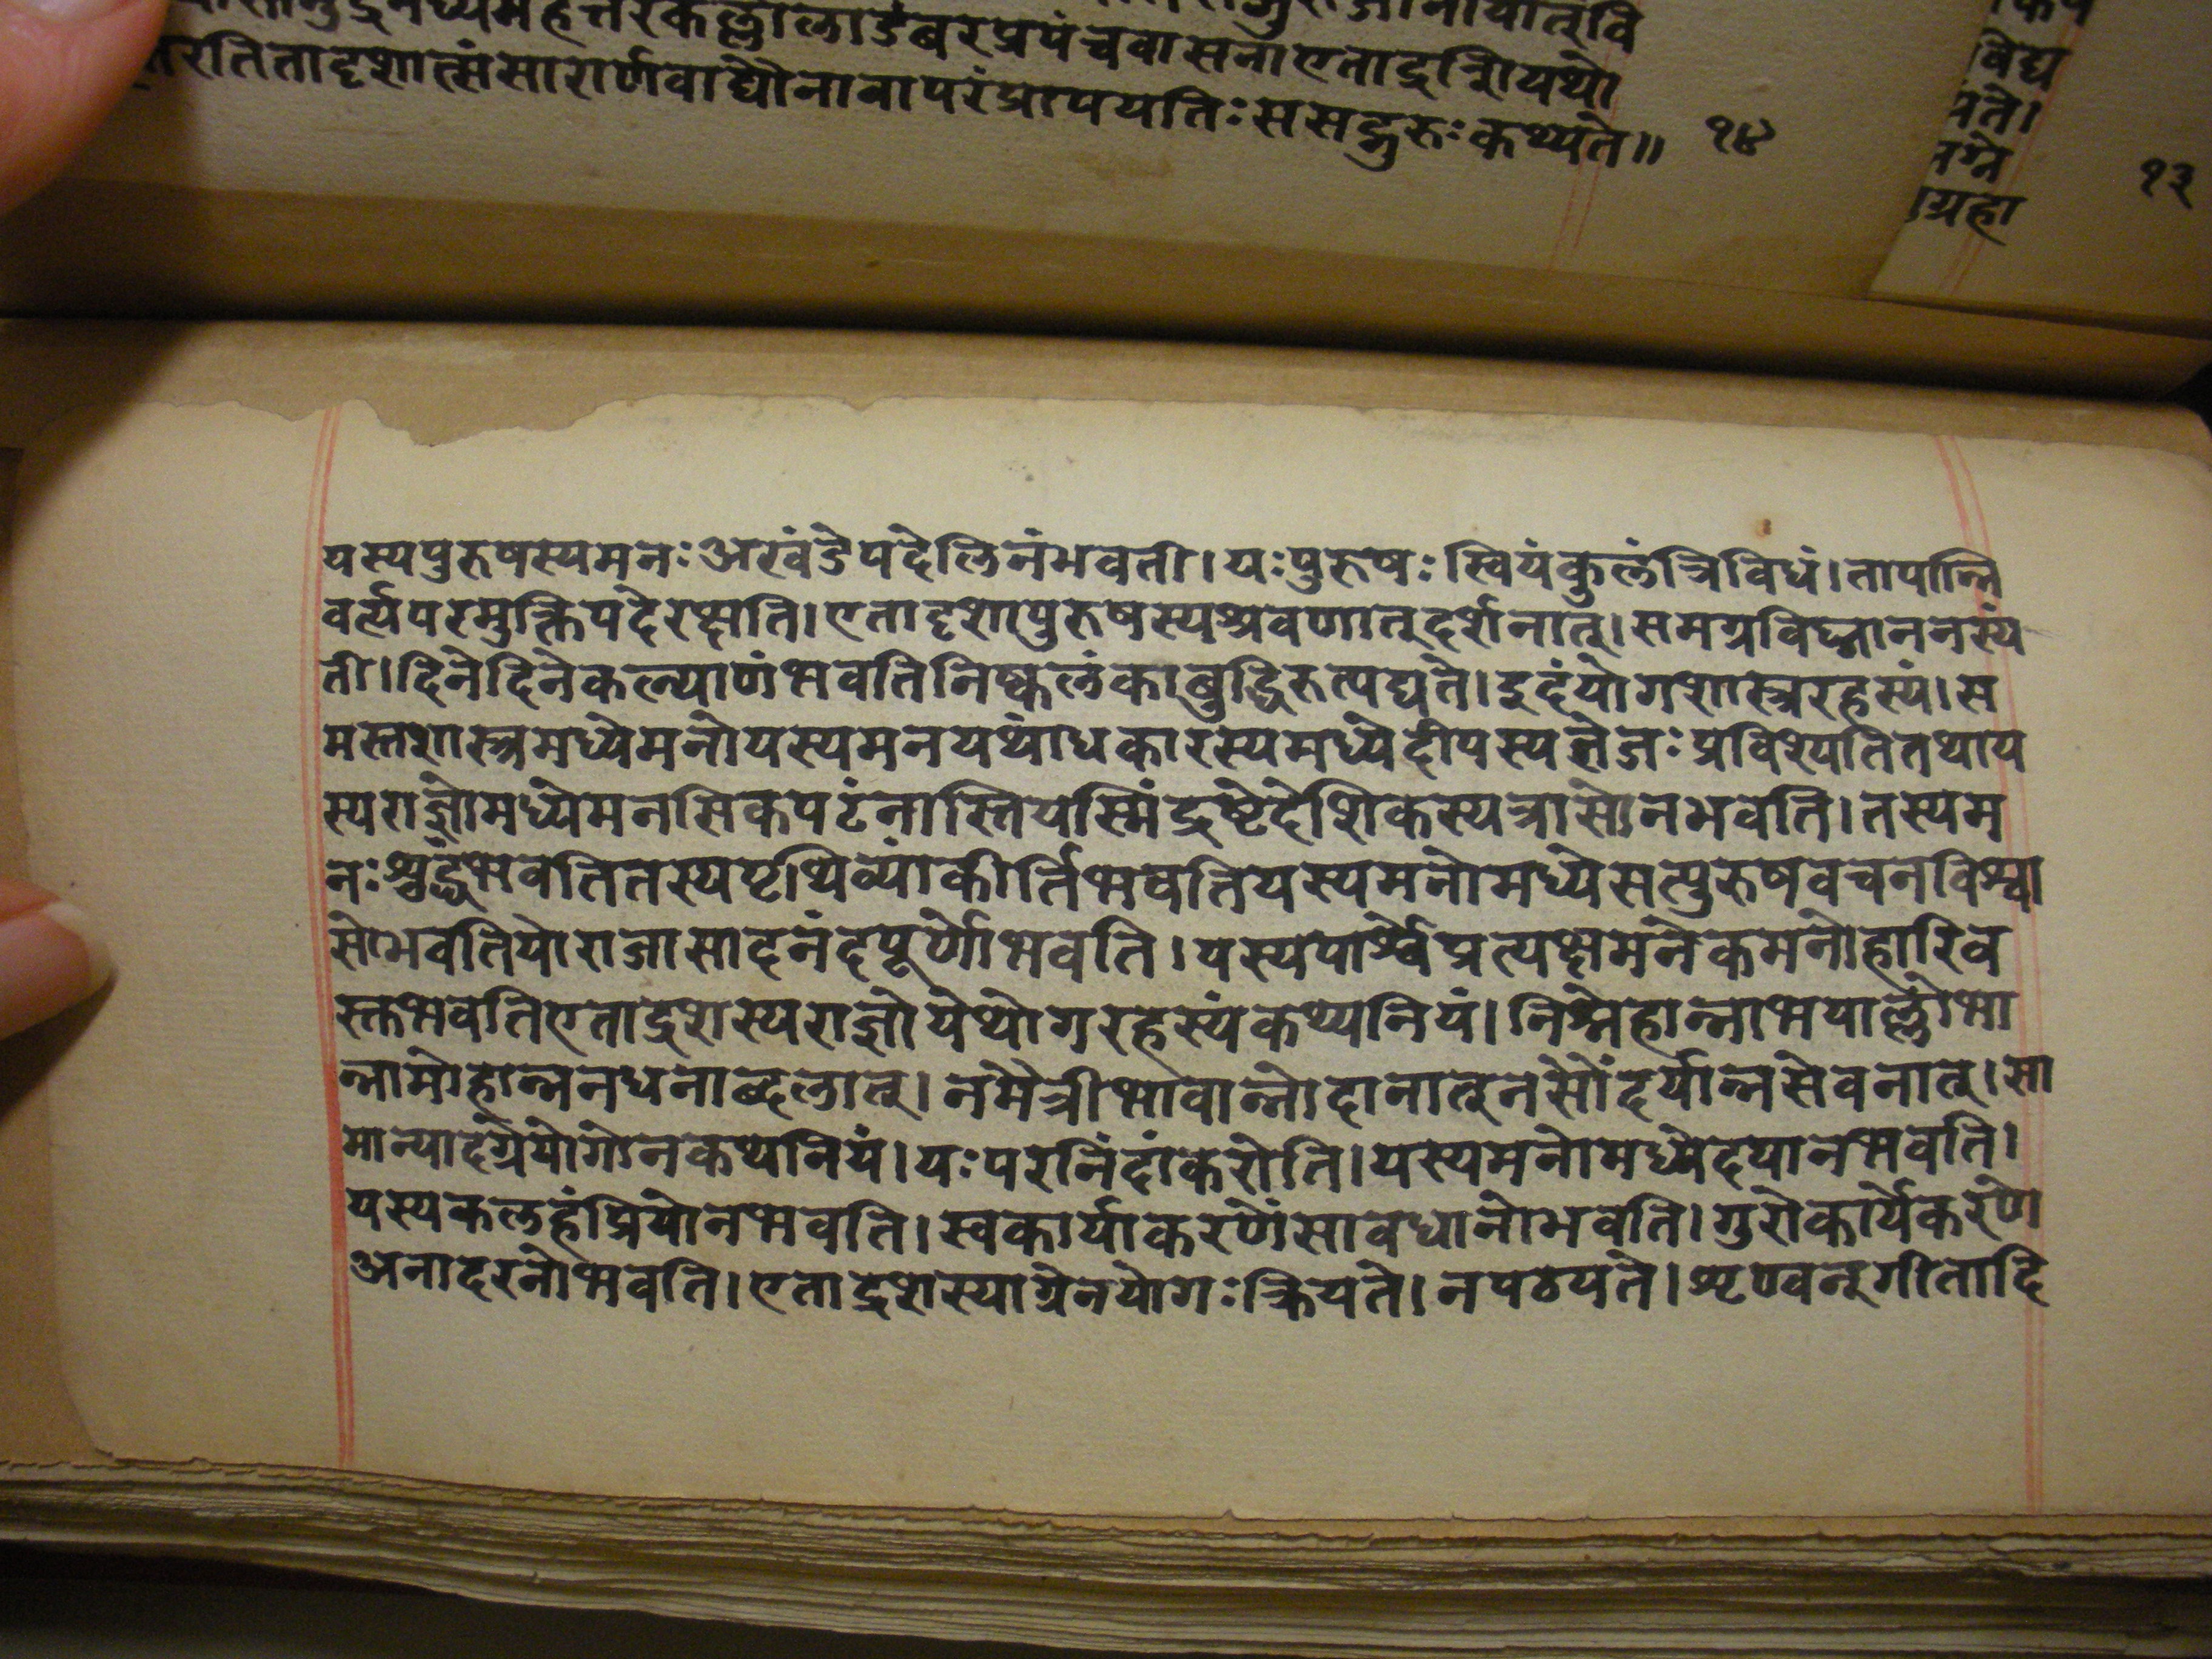 रतितादृशात्संसारार्णवाद्यौनावापरंप्रापयतिःससद्गुरुःकथ्यते॥ १४
विद्य
ग्रहा
१३
यस्यपुरुषस्यमनःअखंडेपदेलिनंभवती।यःपुरुषःस्वियंकुलंत्रिविधं।तापान्नि
वर्त्यपरमुक्तिपदेरक्षति।एतादृशापुरुषस्यश्रवणात्दर्शनात्।समग्रविघ्नाननस्यं
ती।दिनेदिनेकल्याणंभवतिनिष्कलंकाबुद्धिरुत्पद्यते।इदंयोगशास्त्ररहस्यं।स
मस्तशास्त्रमध्येमनोयस्यमनयथांधकारस्यमध्येदीपस्यतेजःप्रविश्यतितथाय
स्यराज्ञोमध्येमनसिकपटंनास्तियस्मिंद्रष्टेदेशिकस्यत्रासोनभवेति।तस्यम
नःश्रुद्धंभवतितस्यपृथिव्यांकीर्तिभवतियस्यमनोमध्येसत्पुरुषवचनविश्वा
सोभवतियोराजासादनंदपूर्णोभवति।यस्यपार्श्वेप्रत्यक्षमनेकमनोहारिव
स्तुभवतिएताद्रशस्यराज्ञोयेथोगरहस्यंकथ्यनियं।निश्नेहान्नाभयाल्लोभा
न्नामोहान्ननधनाब्दलात्।नमैत्रीभावान्नोदानात्नसौंदर्यान्नसेवनात्।सा
मान्यादग्रेयोगोनकथनियं।यःपरनिंदांकरोति।यस्यमनोमध्येदयानभवति।
यस्यकलहंप्रियोनभवति।स्वकार्याकरणेसावधानोभवेति।गुरोकार्यैकरणे
अनादरनोभवति।एताद्रेशस्याग्रेनयोगःक्रियते।नपठयते।शृण्वन्गीतादि